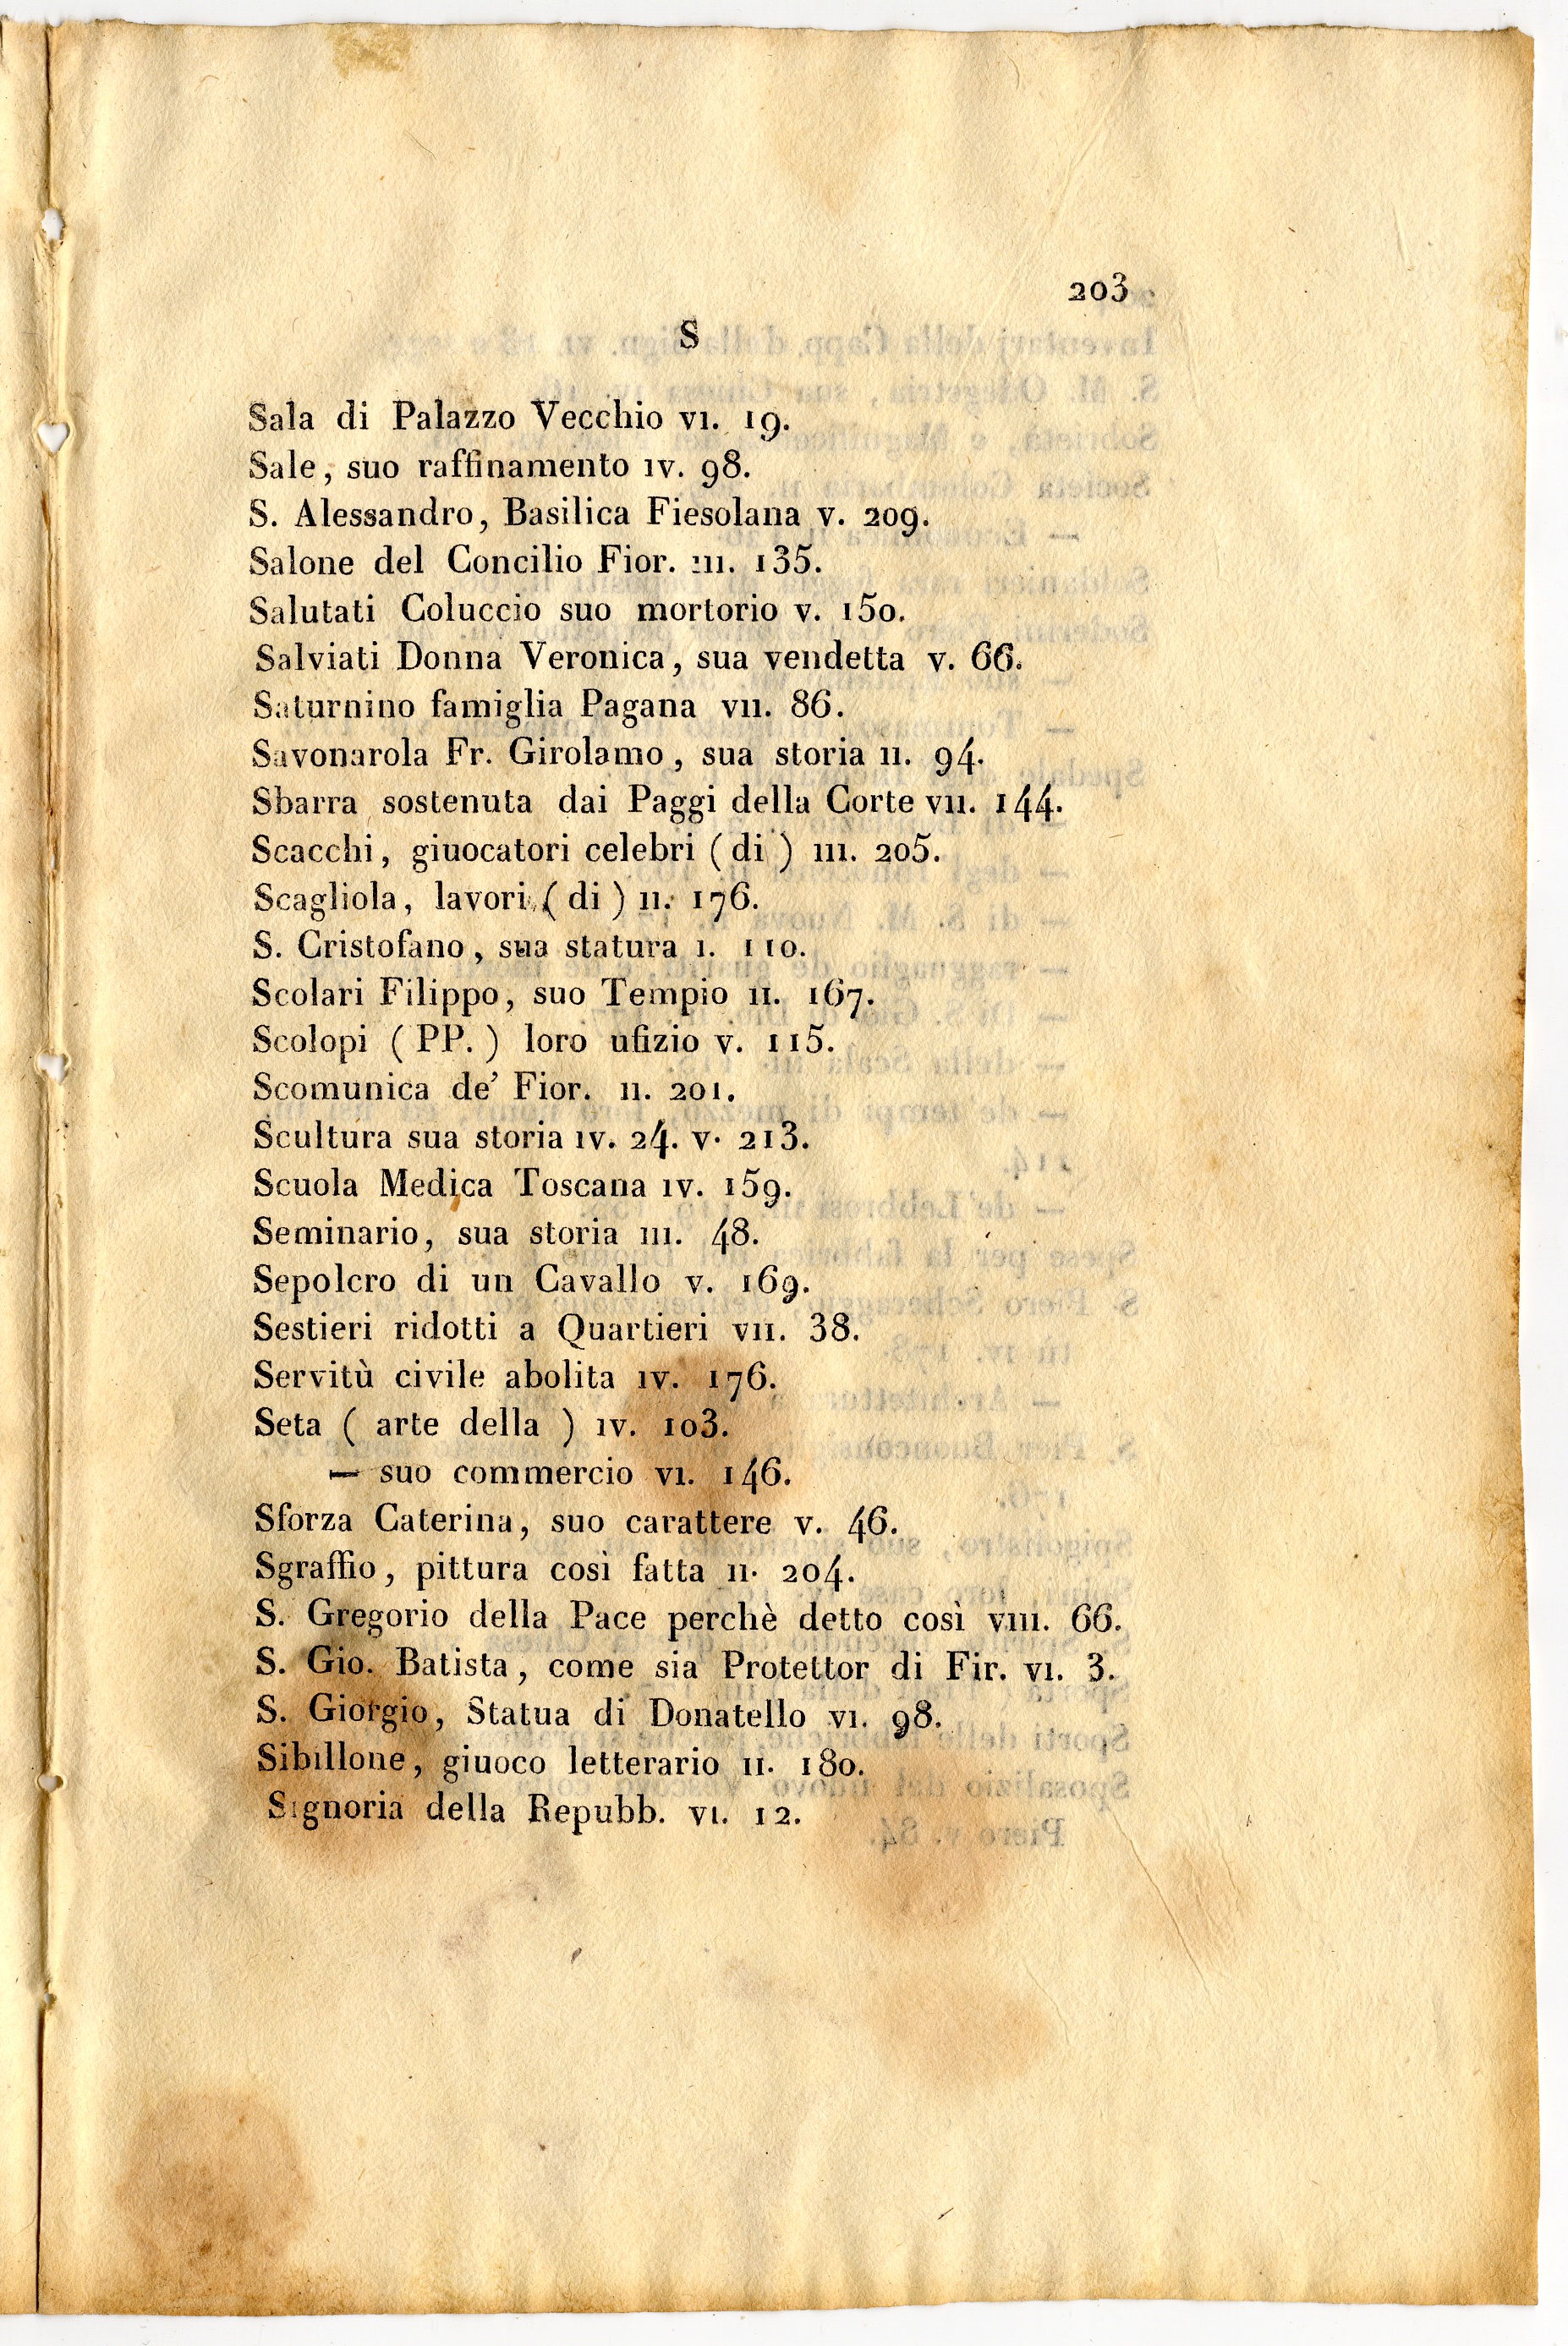 203
S
Sala di Palazzo Vecchio VI. 19.
Sale, suo raffinamento IV. 98.
S. Alessandro, Basilica Fiesolana V. 209.
Salone del Concilio Fior. III. 135.
Salutati Coluccio suo mortorio V. 150.
Salviati Donna Veronica, sua vendetta V. 66.
Saturnino famiglia Pagana VII. 86.
Savonarola Fr. Girolamo, sua storia II. 94.
Sbarra sostenuta dai Paggi della Corte VII. 144.
Scacchi, giuocatori celebri ( di ) III. 205.
Scagliola, lavori ( di ) II. 176.
S. Cristofano, sua statura I. 110.
Scolari Filippo, suo Tempio II. 167.
Scolopi ( PP. ) loro ufizio V. 115.
Scomunica de' Fior. II. 201.
Scultura sua storia IV. 24. V. 213.
Scuola Medica Toscana IV. 159.
Seminario, sua storia III. 48.
Sepolcro di un Cavallo V. 169.
Sestieri ridotti a Quartieri VII. 38.
Servitù civile abolita IV. 176.
Seta ( arte della ) IV. 103.
— suo commercio VI. 146.
Sforza Caterina, suo carattere V. 46.
Sgraffio, pittura così fatta II. 204.
S. Gregorio della Pace perchè detto così VIII. 66.
S. Gio. Batista, come sia Protettor di Fir. VI. 3.
S. Giorgio, Statua di Donatello VI. 98.
Sibillone, giuoco letterario II. 180.
Signoria della Repubb. VI. 12.